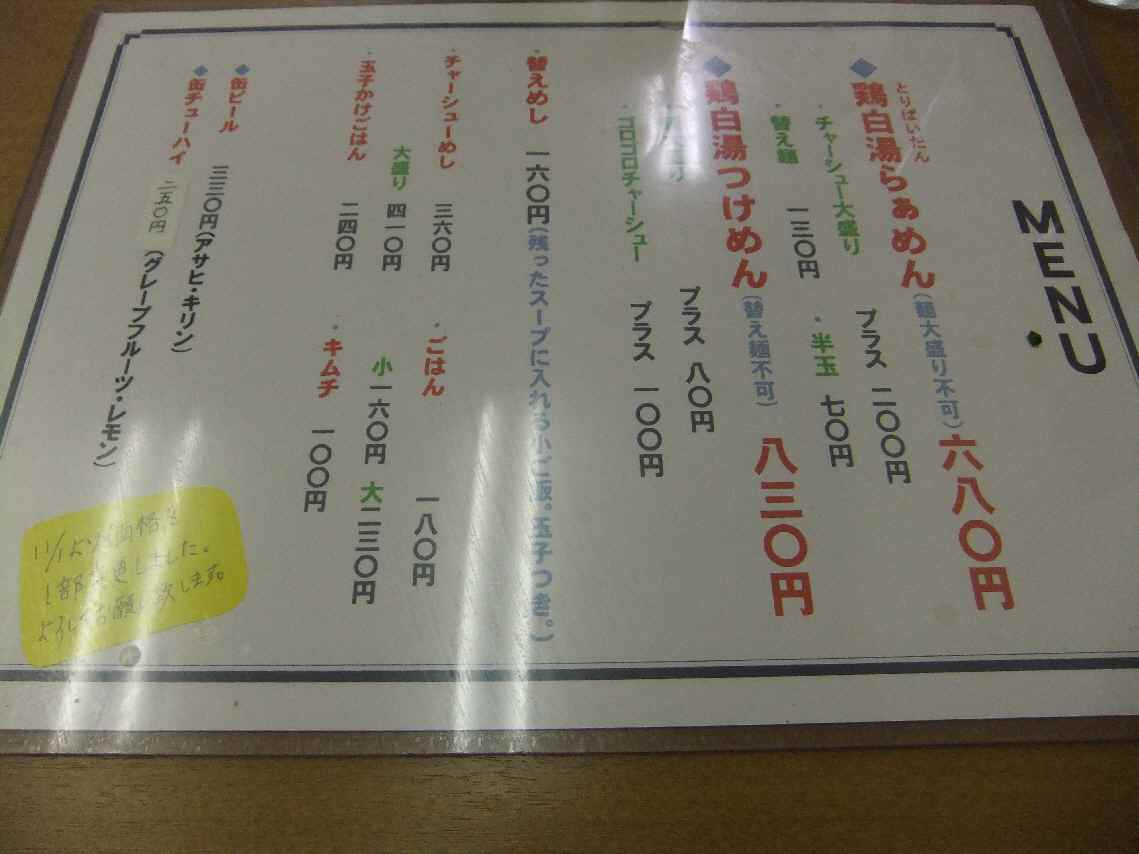 MENU
とりぱいたん
鶏白湯らぁめん(麺大盛り不可)六八〇円
チャーシュー大盛り プラス 二〇〇円
替え麺 一三〇円 ・半玉 七〇円
鶏白湯つけめん(替え麺不可)八三〇円
プラス 八〇円
ゴロゴロチャーシュー プラス 一〇〇円
・替えめし 一六〇円(残ったスープに入れる小ご飯。玉子つき。)
・チャーシューめし 三六〇円
大盛り 四一〇円
・玉子かけごはん 二四〇円
・ごはん 一八〇円
小 一六〇円 大 二三〇円
・キムチ 一〇〇円
缶ビール 三三〇円(アサヒ・キリン)
缶チューハイ 二五〇円(グレープフルーツ・レモン)
11/1より価格を
1部変更しました。
よろしくお願い致します。